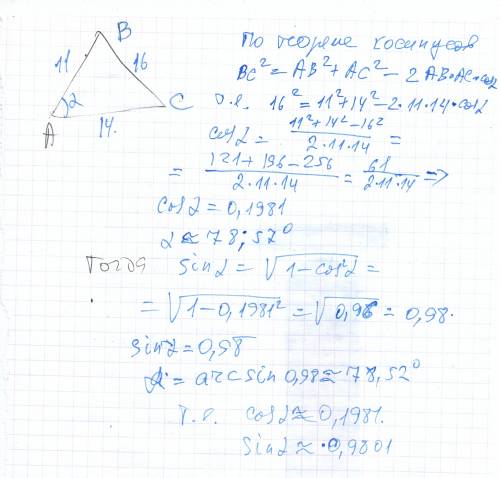 B
11
16
A
α
C
14.
По теореме косинусов
BC² = AB² + AC² - 2AB·AC·cosα
т.е. 16² = 11² + 14² - 2·11·14·cosα
cosα = (11² + 14² - 16²) / (2·11·14) =
= (121 + 196 - 256) / (2·11·14) = 61 / (2·11·14) =>
cosα = 0,1981
α ≈ 78,57°
Тогда sinα = √(1 - cos²α) =
= √(1 - 0,1981²) = √0,96 = 0,98.
sinα = 0,98
α = arcsin 0,98 ≈ 78,52°
т.е. cosα ≈ 0,1981.
sinα ≈ 0,9801